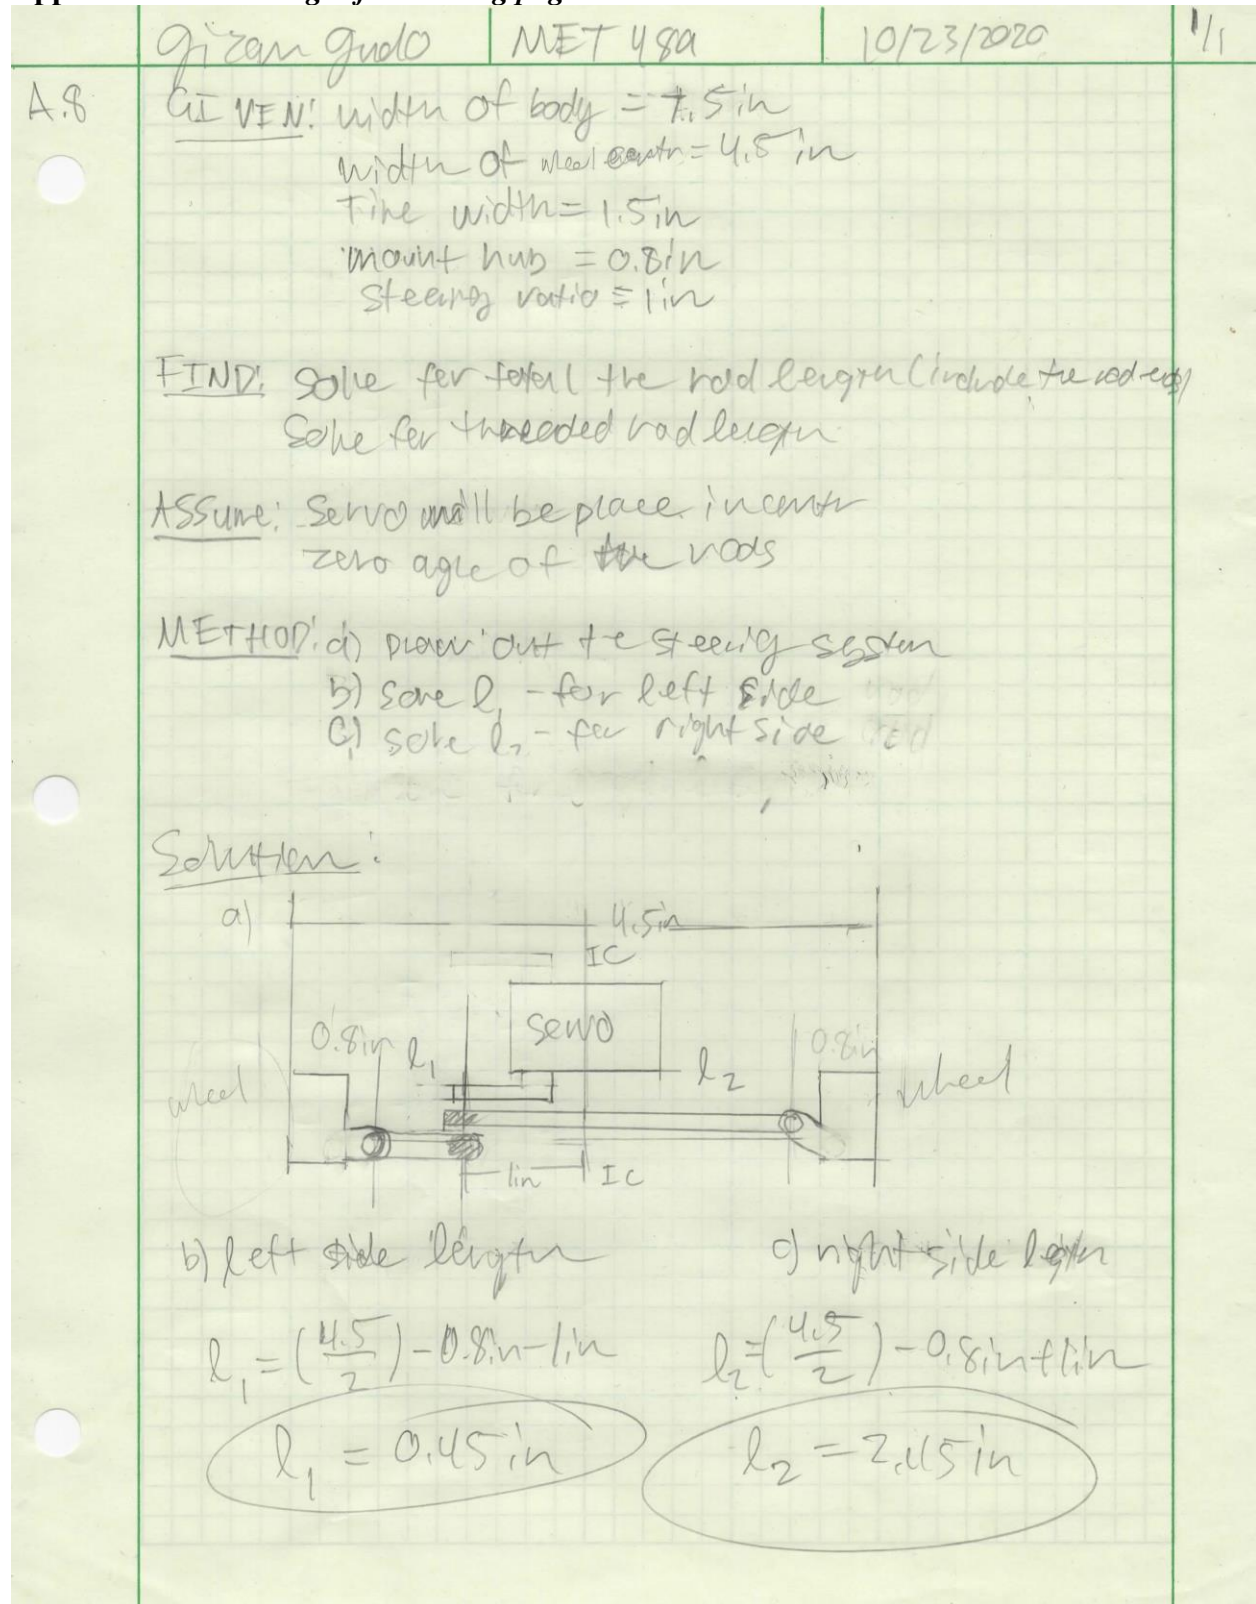 Gizan Gudo MET 489 10/23/2020 1/1
A.8 GIVEN: width of body = 7.5in
width of wheel = 4.5in
Tire width = 1.5in
mount hub = 0.8in
Steering ratio = 1in
FIND: Solve for total the rod length (include the rod ends)
Solve for threaded rod length
ASSUME: Servo will be place in centr
zero agle of the rods
METHOD: a) Draw out te steering system
b) Solve l1 - for left side rod
c) solve l2 - for right side rod
Solution:
a) 4.5in
IC
Servo
0.8in l1 l2 0.8in
wheel wheel
1in IC
b) left side length c) right side
l1 = (4.5/2) - 0.8in - 1in l2 = (4.5/2) - 0.8in + 1in
l1 = 0.45in l2 = 2.45in